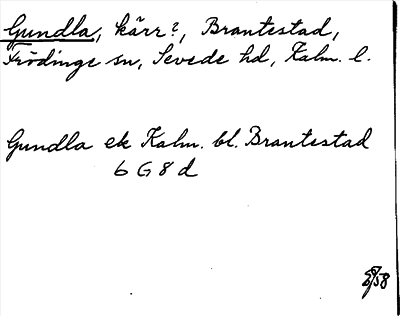 Gundla, kärr?, Brantestad,
Frödinge sn, Sevede hd, Kalm. l.
Gundla ek Kalm. bl. Brantestad
6 G 8 d